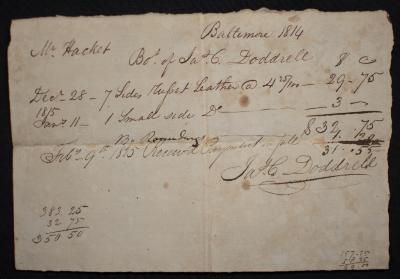 Baltimore 1814
Mr Hacket
Bot of Jas C. Doddrell $ C
Decr 28 - 7 Sides Russet Leather @ 4 25/m - 29 - 75
1815
Janr 11 - 1 Small side Do - 3 -
$ 32 . 75
Feby 9th 1815 Received Payment in full
Jas C Doddrell
383 25
32 75
350 50